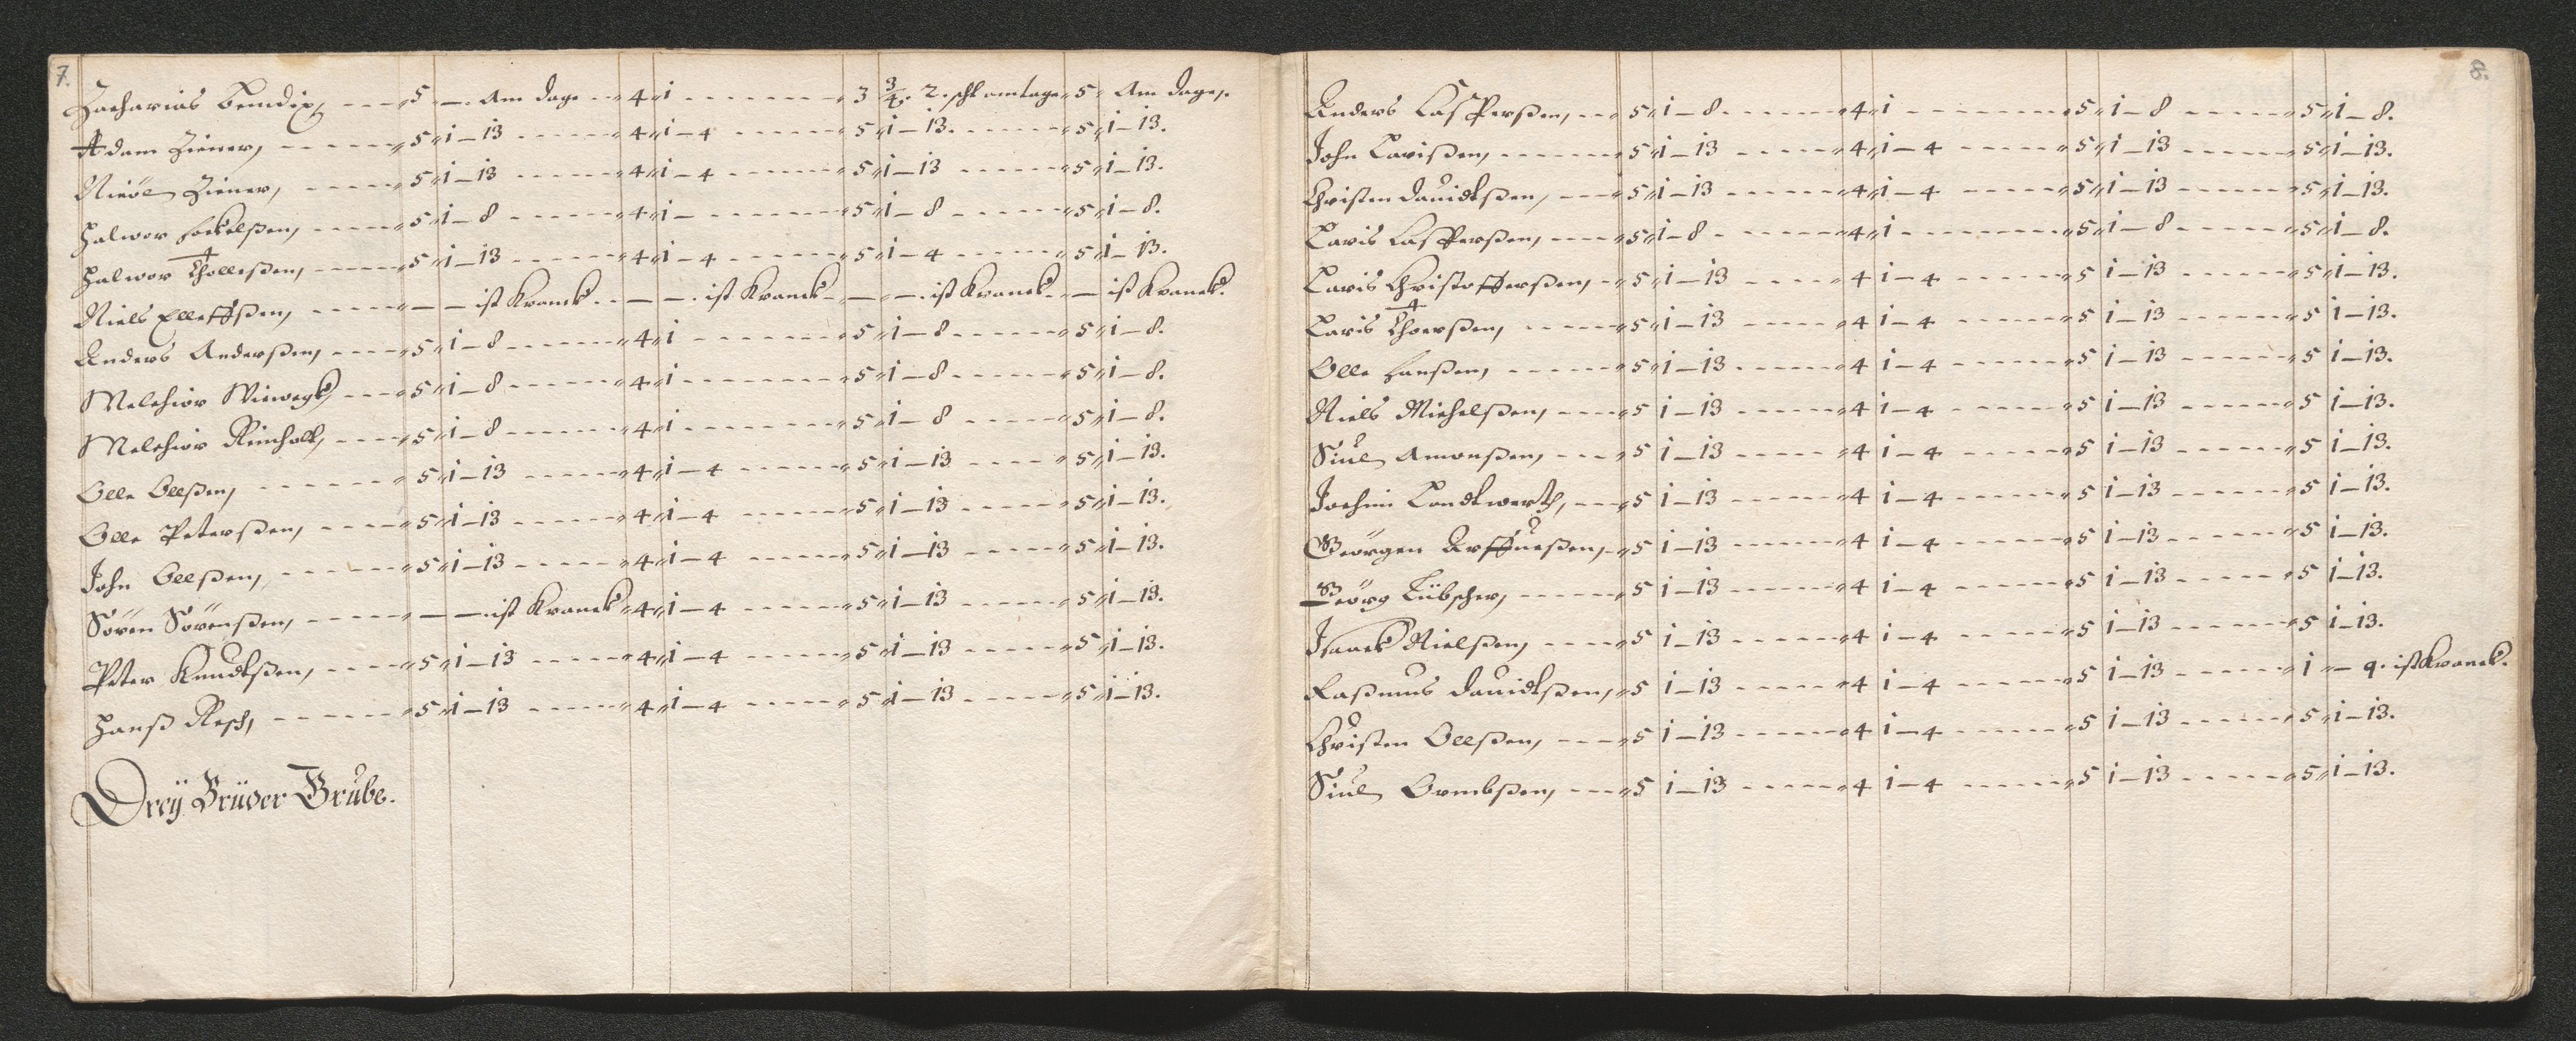 7.
Zacharias Bendix, ---- 5 -. Am dage -- 4 " i -------- 3 3/4. 2. schl am tage " 5 " Am dage,.
Adam Ziener, ------ " 5 " i - 13 ------ " 4 " i - 4 ------ " 5 " i - 13. ------ " 5 " i - 13.
Nicol Ziener, ------ 5 " i - 13 ------ " 4 " i - 4 ------ " 5 " i - 13 ------ " 5 " i - 13.
Halwor Fockelßen, ----- 5 " i - 8 ------ " 4 " i - ------- " 5 " i - 8 ------ " 5 " i - 8.
Halwor Tholleßen, ----- " 5 " i - 13 ------ " 4 " i - 4 ------ " 5 " i - 4 ----- " 5 " i - 13.
Niels Elleffßen, ------ - - ist Kranck. - - -. ist Kranck - - -. ist Kranck. - - ist Kranck.
Anders Anderßen, ---- " 5 " i - 8 ------- " 4 " i -------- " 5 " i - 8 ------ " 5 " i - 8.
Melchior Viewegk, --- " 5 " i - 8 ------ " 4 " i -------- " 5 " i - 8 ----- " 5 " i - 8.
Melchior Reinholt, ---- " 5 " i - 8 ------- " 4 " i -------- " 5 " i - 8 ----- " 5 " i - 8.
Olle Ollßen, ------- " 5 " i - 13 ------ " 4 " i - 4 ------ " 5 " i - 13 ---- " 5 " i - 13.
Olle Peterßen, ----- " 5 " i - 13 ------ " 4 " i - 4 ------ " 5 " i - 13 ----- " 5 " i - 13.
John Ollßen, ------ " 5 " i - 13 ------ " 4 " i - 4 ------ " 5 " i - 13 ----- " 5 " i - 13.
Sören Sörenßen, ----- - -. ist Kranck " 4 " i - 4 ------ " 5 " i - 13 ----- " 5 " i - 13.
Peter Knudtßen, ---- " 5 " i - 13 ------ " 4 " i - 4 ------ " 5 " i - 13 ----- " 5 " i - 13.
Hanß Resch, ------ " 5 " i - 13 ------ " 4 " i - 4 ------ " 5 " i - 13 ----- " 5 " i - 13.
Dreÿ Brüder Grube.
8.
Anders Casperßen, -- " 5 " i - 8 ------- " 4 " i -------- " 5 " i - 8 ------ " 5 " i - 8.
John Larißen, ------- " 5 " i - 13 ------ " 4 " i - 4 ------ " 5 " i - 13 ------ " 5 " i - 13.
Christen Dauidtßen, --- " 5 " i - 13 ------ " 4 " i - 4 ------ " 5 " i - 13 ------ " 5 " i - 13.
Laris Casperßen, ---- " 5 " i - 8 ------- " 4 " i -------- " 5 " i - 8 ------ " 5 " i - 8.
Laris Christofferßen, -- " 5 " i - 13 ----- " 4 i - 4 ------ " 5 i - 13 ------ " 5 " i - 13.
Laris Thoerßen, ----- " 5 " i - 13 ------ " 4 i - 4 ------ " 5 i - 13 ------ " 5 i - 13.
Olle Hanßen, ------ " 5 " i - 13 ------ " 4 i - 4 ------ " 5 i - 13 ------ " 5 i - 13.
Niels Michelßen, ---- " 5 i - 13 ------ " 4 i - 4 ------ " 5 i - 13 ------ " 5 i - 13.
Siul Amonßen, ---- " 5 i - 13 ----- " 4 i - 4 ------ " 5 i - 13 ------ " 5 i - 13.
Jochim Landtwerth, --- " 5 i - 13 ------ " 4 i - 4 ------ " 5 i - 13 ------ " 5 i - 13.
Geörgen Arffueßen, -- " 5 i - 13 ------ " 4 i - 4 ------ " 5 i - 13 ------ " 5 i - 13.
Geörg Lübscher, ----- " 5 i - 13 ------ " 4 i - 4 ------ " 5 i - 13 ------ " 5 i - 13.
Isaack Nielßen, ---- " 5 i - 13 ------ " 4 i - 4 ------ " 5 i - 13 ------ " 5 i - 13.
Raßmus Dauidtßen, " 5 i - 13 ------ " 4 i - 4 ------ " 5 i - 13 ------ " i " - 9. ist Kranck.
Christen Ollßen, ---- " 5 i - 13 ------ " 4 i - 4 ------ " 5 i - 13 ------ " 5 " i - 13.
Siul Ormbßen, --- " 5 i - 13 ------ " 4 i - 4 ------ " 5 i - 13 ------ " 5 " i - 13.